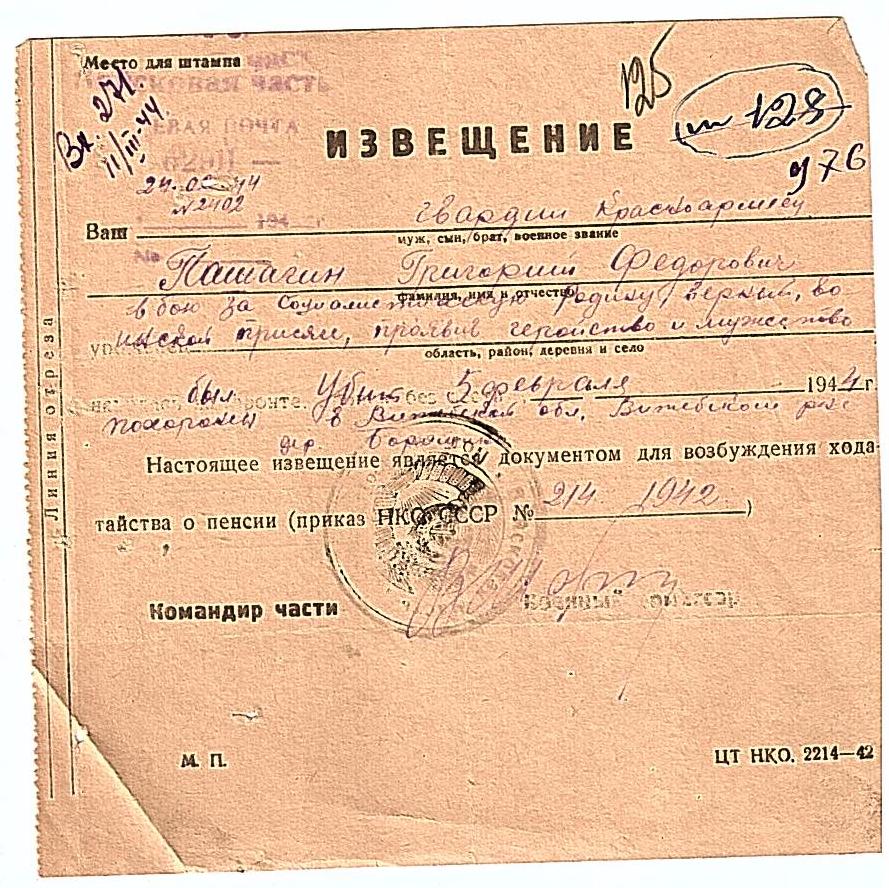 Место для штампа
част
войсковая часть
Вх. 271.
11/III-44
125
128
976
ПОЛЕВАЯ ПОЧТА
ИЗВЕЩЕНИЕ
№ 2402
194 г
Ваш гвардии красноармеец
муж, сын, брат, военное звание
№
Пашагин Григорий Федорович
фамилия, имя и отчество
в бою за Социалистическую родину, верный, во
инской присяге, проявив геройство и мужество
область, район, деревня и село
был убит 5 февраля 1944 г.
похоронен в Витебской обл, Витебском р-не
дер.
Настоящее извещение является документом для возбуждения хода-
тайства о пенсии (приказ НКО СССР № 214 1942)
Командир части
М. П.
ЦТ НКО. 2214—42
Линия отреза